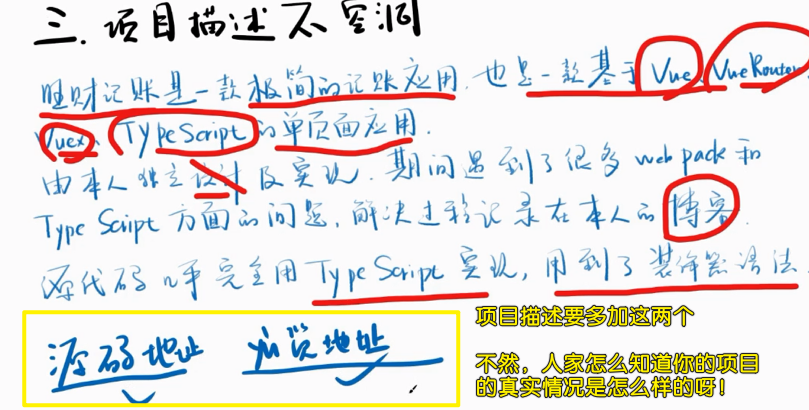 三. 项目描述不空洞
旺财记账是一款极简的记账应用. 也是一款基于 Vue、VueRouter
Vuex、TypeScript的单页面应用.
由本人独立设计及实现. 期间遇到了很多 webpack 和
TypeScript 方面的问题, 解决过程记录在本人的博客.
源代码几乎完全用TypeScript 实现, 用到了装饰器语法.
源码地址 预览地址
项目描述要多加这两个
不然，人家怎么知道你的项目
的真实情况是怎么样的呀！